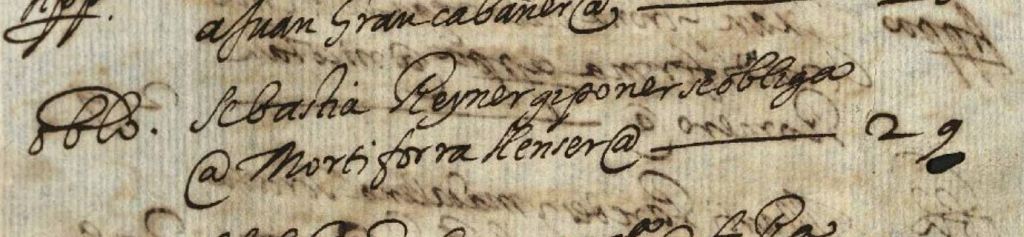 a Juan Grau cabaner@,
oblõ. sebastia Reyner giponer se obliga
@ Morti forra llenser@ 29